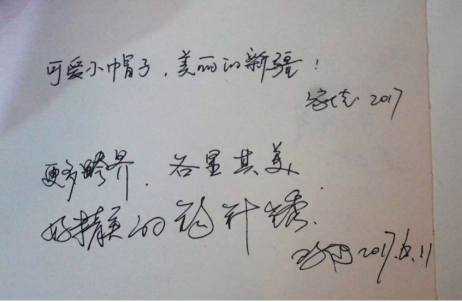 可爱小帽子,美丽的新疆!
2017
更多跨界,各显其美
好精美的 针绣.
2017.6.11